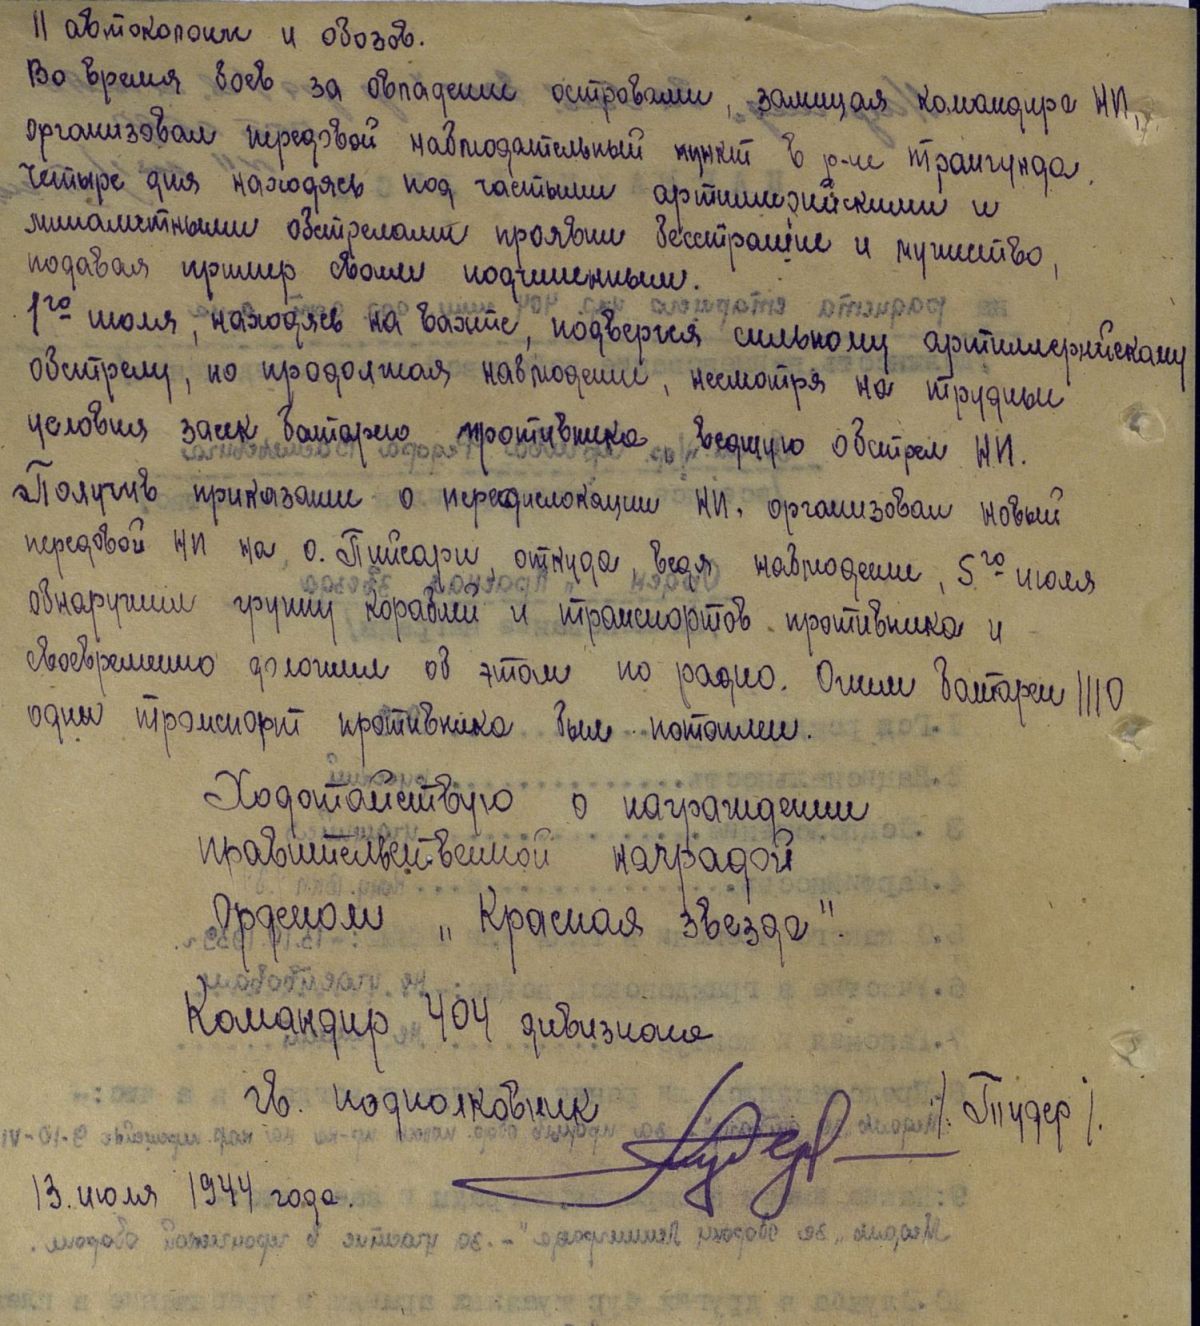 11 автоколонн и обозов.
Во время боев за овладение островами, замещая командира НП,
организовал передовой наблюдательный пункт в р-не Транзунда.
Четыре дня находясь под частыми артиллерийскими и
минометными обстрелами проявил бесстрашие и мужество,
подавая пример своим подчиненным.
1го июля, находясь на вахте, подвергся сильному артиллерийскому
обстрелу, но продолжая наблюдение, несмотря на трудные
условия засек батарею противника, ведущую обстрел НП.
Получив приказание о передислокации НП. организовал новый
передовой НП на о. Пийсари, откуда, ведя наблюдение, 5го июля
обнаружил группу кораблей и транспортов противника и
своевременно доложил об этом по радио. Огнем батареи 1110
один транспорт противника был потоплен.
Ходотайствую о награждении
правительственной наградой
Орденом „Красная звезда".
Командир 404 дивизиона
гв. подполковник /Тудер/.
13. июля 1944 года.